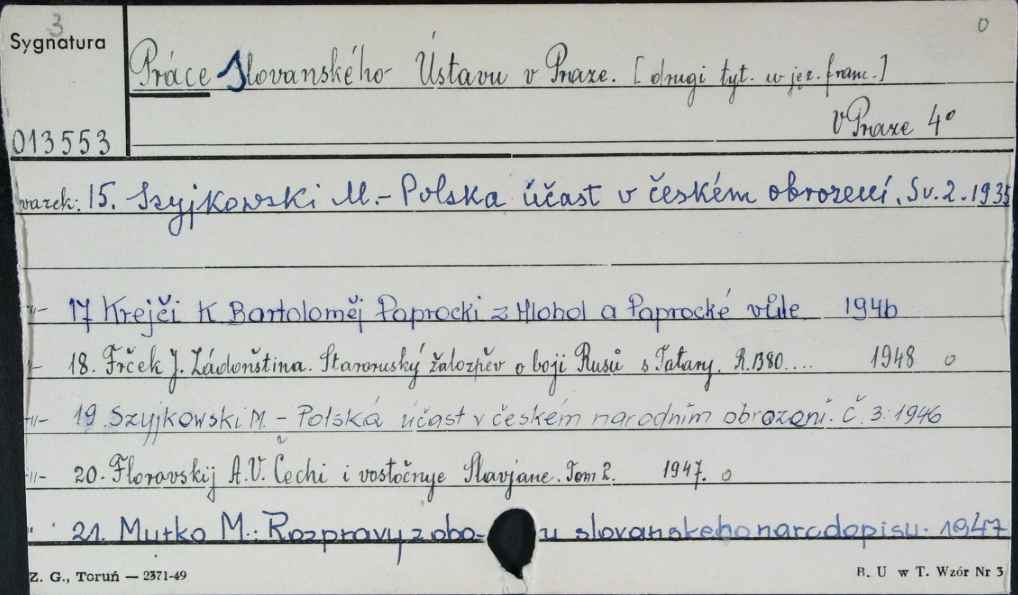 3
0
Sygnatura
Práce Slovanského Ústavu v Praze. [drugi tyt. w jęz. franc.]
V Praze 4°
013553
15. Szyjkowski M. - Polska účast v českém obrození. Sv. 2. 1935
-"- 17 Krejči K Bartoloměj Paprocki z Hlohol a Paprocké vůle 1946
18. Frček J. Zádonština. Staroruský žalozpěv o boji Rusů s Tatary. R. 1380.... 1948 o
-"- 19. Szyjkowski M. - Polská účast v českém narodním obrozeni. Č. 3. 1946
-"- 20. Florovskij A.V. Čechi i vostočnyje Slavjane. Tom 2. 1947. o
" 21. Murko M.: Rozpravy z obo- u slovanskeho narodopisu. 1947
Z. G., Toruń — 2371-49
B. U w T. Wzór Nr 3